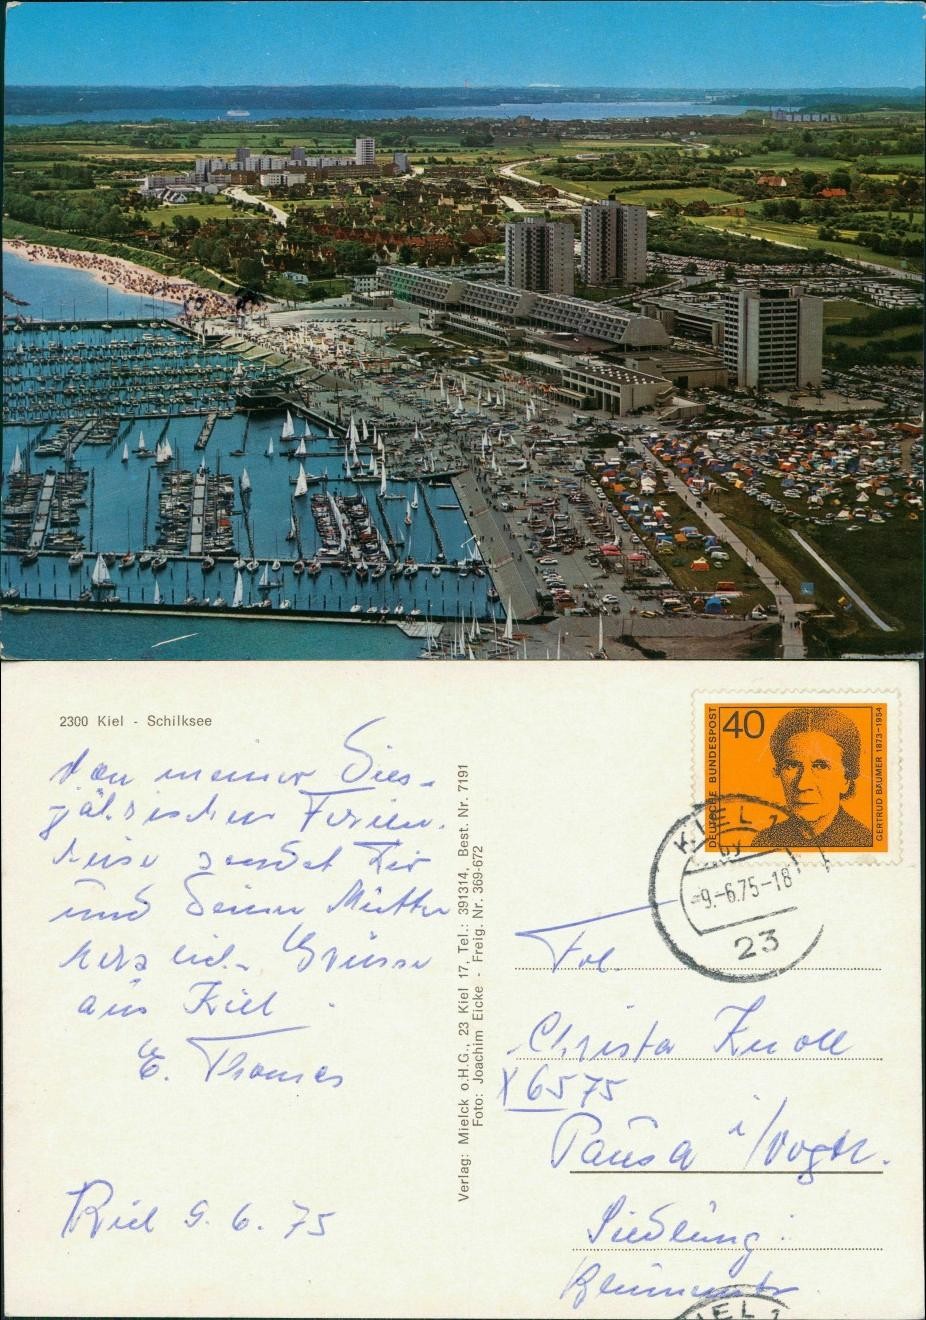 2300 Kiel - Schilksee
Von meiner Dies-
jährischen Ferien-
reise sendet Dir
und Deiner Mutter
herzlich. Grüsse
aus Kiel.
E. Thomas
Kiel 9.6.75
Verlag: Mielck o.H.G., 23 Kiel 17, Tel.: 391314, Best. Nr. 7191
Foto: Joachim Eicke - Freig. Nr. 369-672
40
DEUTSCHE BUNDESPOST
GERTRUD BÄUMER 1873-1954
KIEL 1
-9.-6.75-18
23
Frl.
Christa Knoll
X 6575
Pausa i/Vogtl.
Siedlung:
KIEL 1